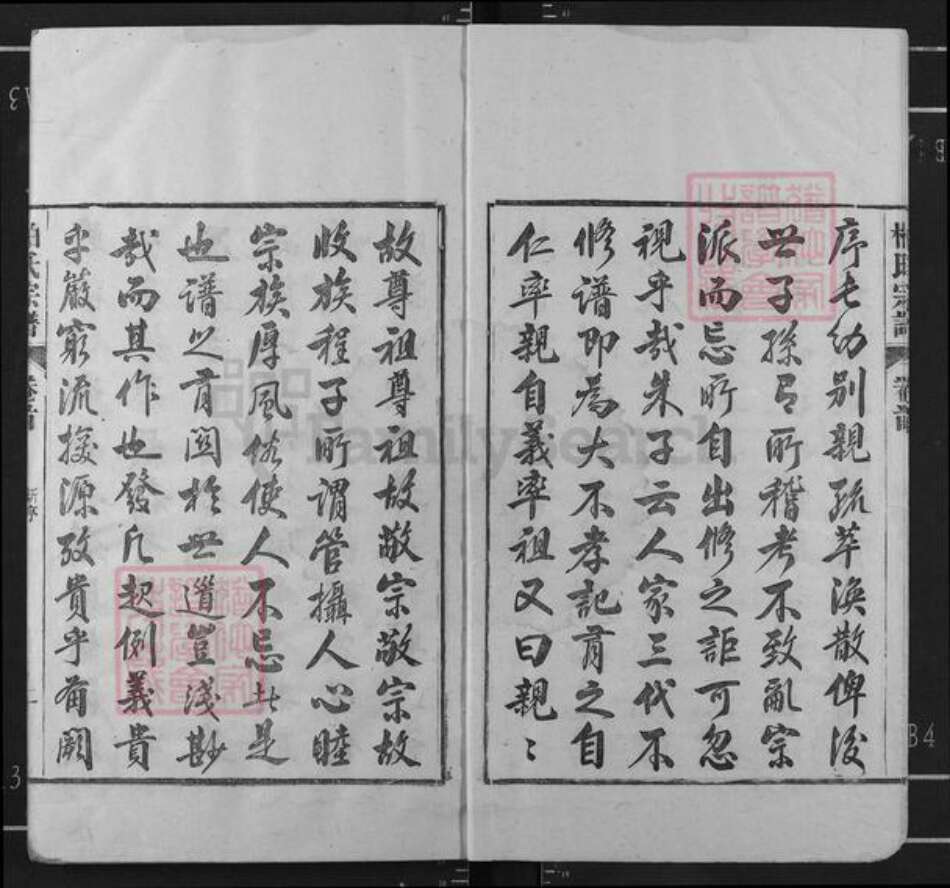 序長幼別親疏萃渙散俾後
世子孫有所稽考不致亂宗
派而忘所自出修之詎可忽
視乎哉朱子云人家三代不
修譜即為大不孝記有之自
仁率親自義率祖又曰親〻
故尊祖尊祖故敬宗敬宗故
收族程子所謂管攝人心睦
宗族厚風俗使人不忘此是
也譜之有關於世道豈淺尠
哉而其作也發凡起例義貴
乎嚴窮流援源攷貴乎有闕
柏氏宗譜
卷首
新序
FamilySearch